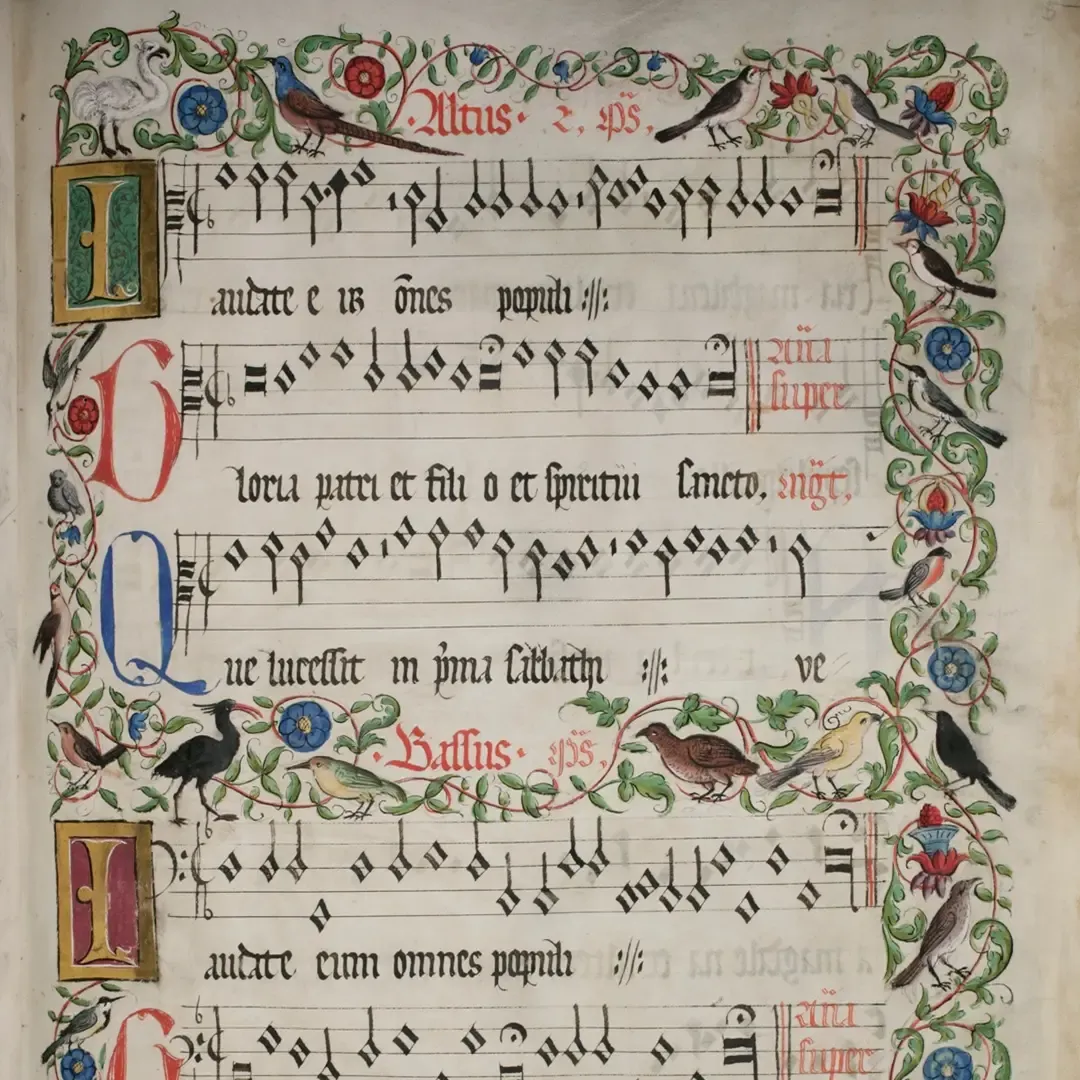 Altus. 2. ps̄.
Laudate e uꝫ ōnes populi ://:
Añа
super
Gloria patri et fili o et spiritui sancto, mgt,
Que lucessit in pma sabbathi ://: ve
Bassus. ps̄,
Laudate eum omnes populi ://:
Aña
super